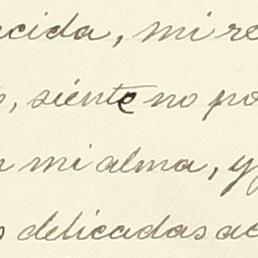 ecida, mi re
, siente no po
mi alma, y
s delicadas ac